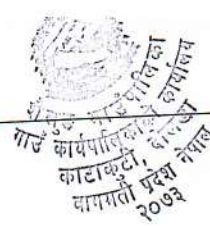 गाउँ कार्यपालिकाको कार्यालय
काटाकुटी, दोलखा
वागमती प्रदेश नेपाल
२०७३